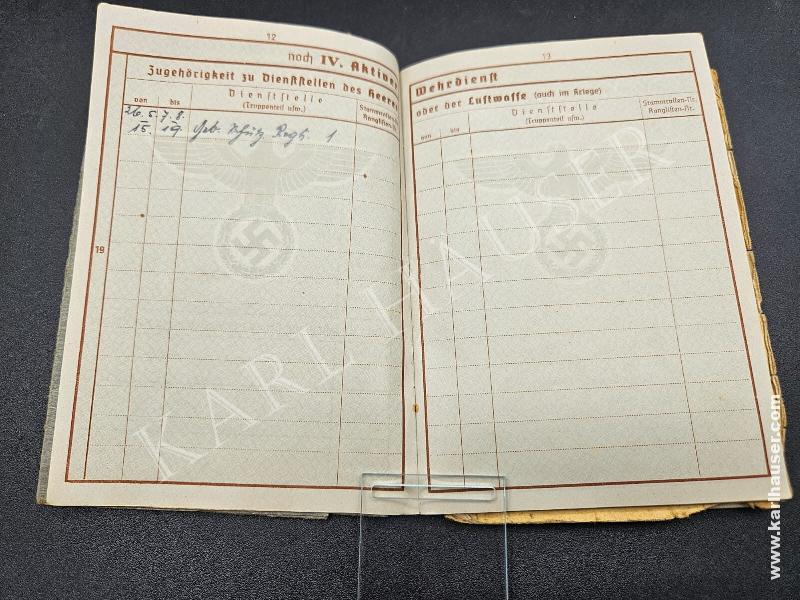 12
noch IV. Aktiver
Zugehörigkeit zu Dienststellen des Heeres
von
bis
Dienststelle
(Truppenteil usw.)
Stammrollen-Nr.
Ranglisten-Nr.
26.5. 7.8.
15. 19
Geb. Schütz. Regt. 1
19
13
Wehrdienst
oder der Luftwaffe (auch im Kriege)
von
bis
Dienststelle
(Truppenteil usw.)
Stammrollen-Nr.
Ranglisten-Nr.
KARL HÄUSER
www.karlhauser.com